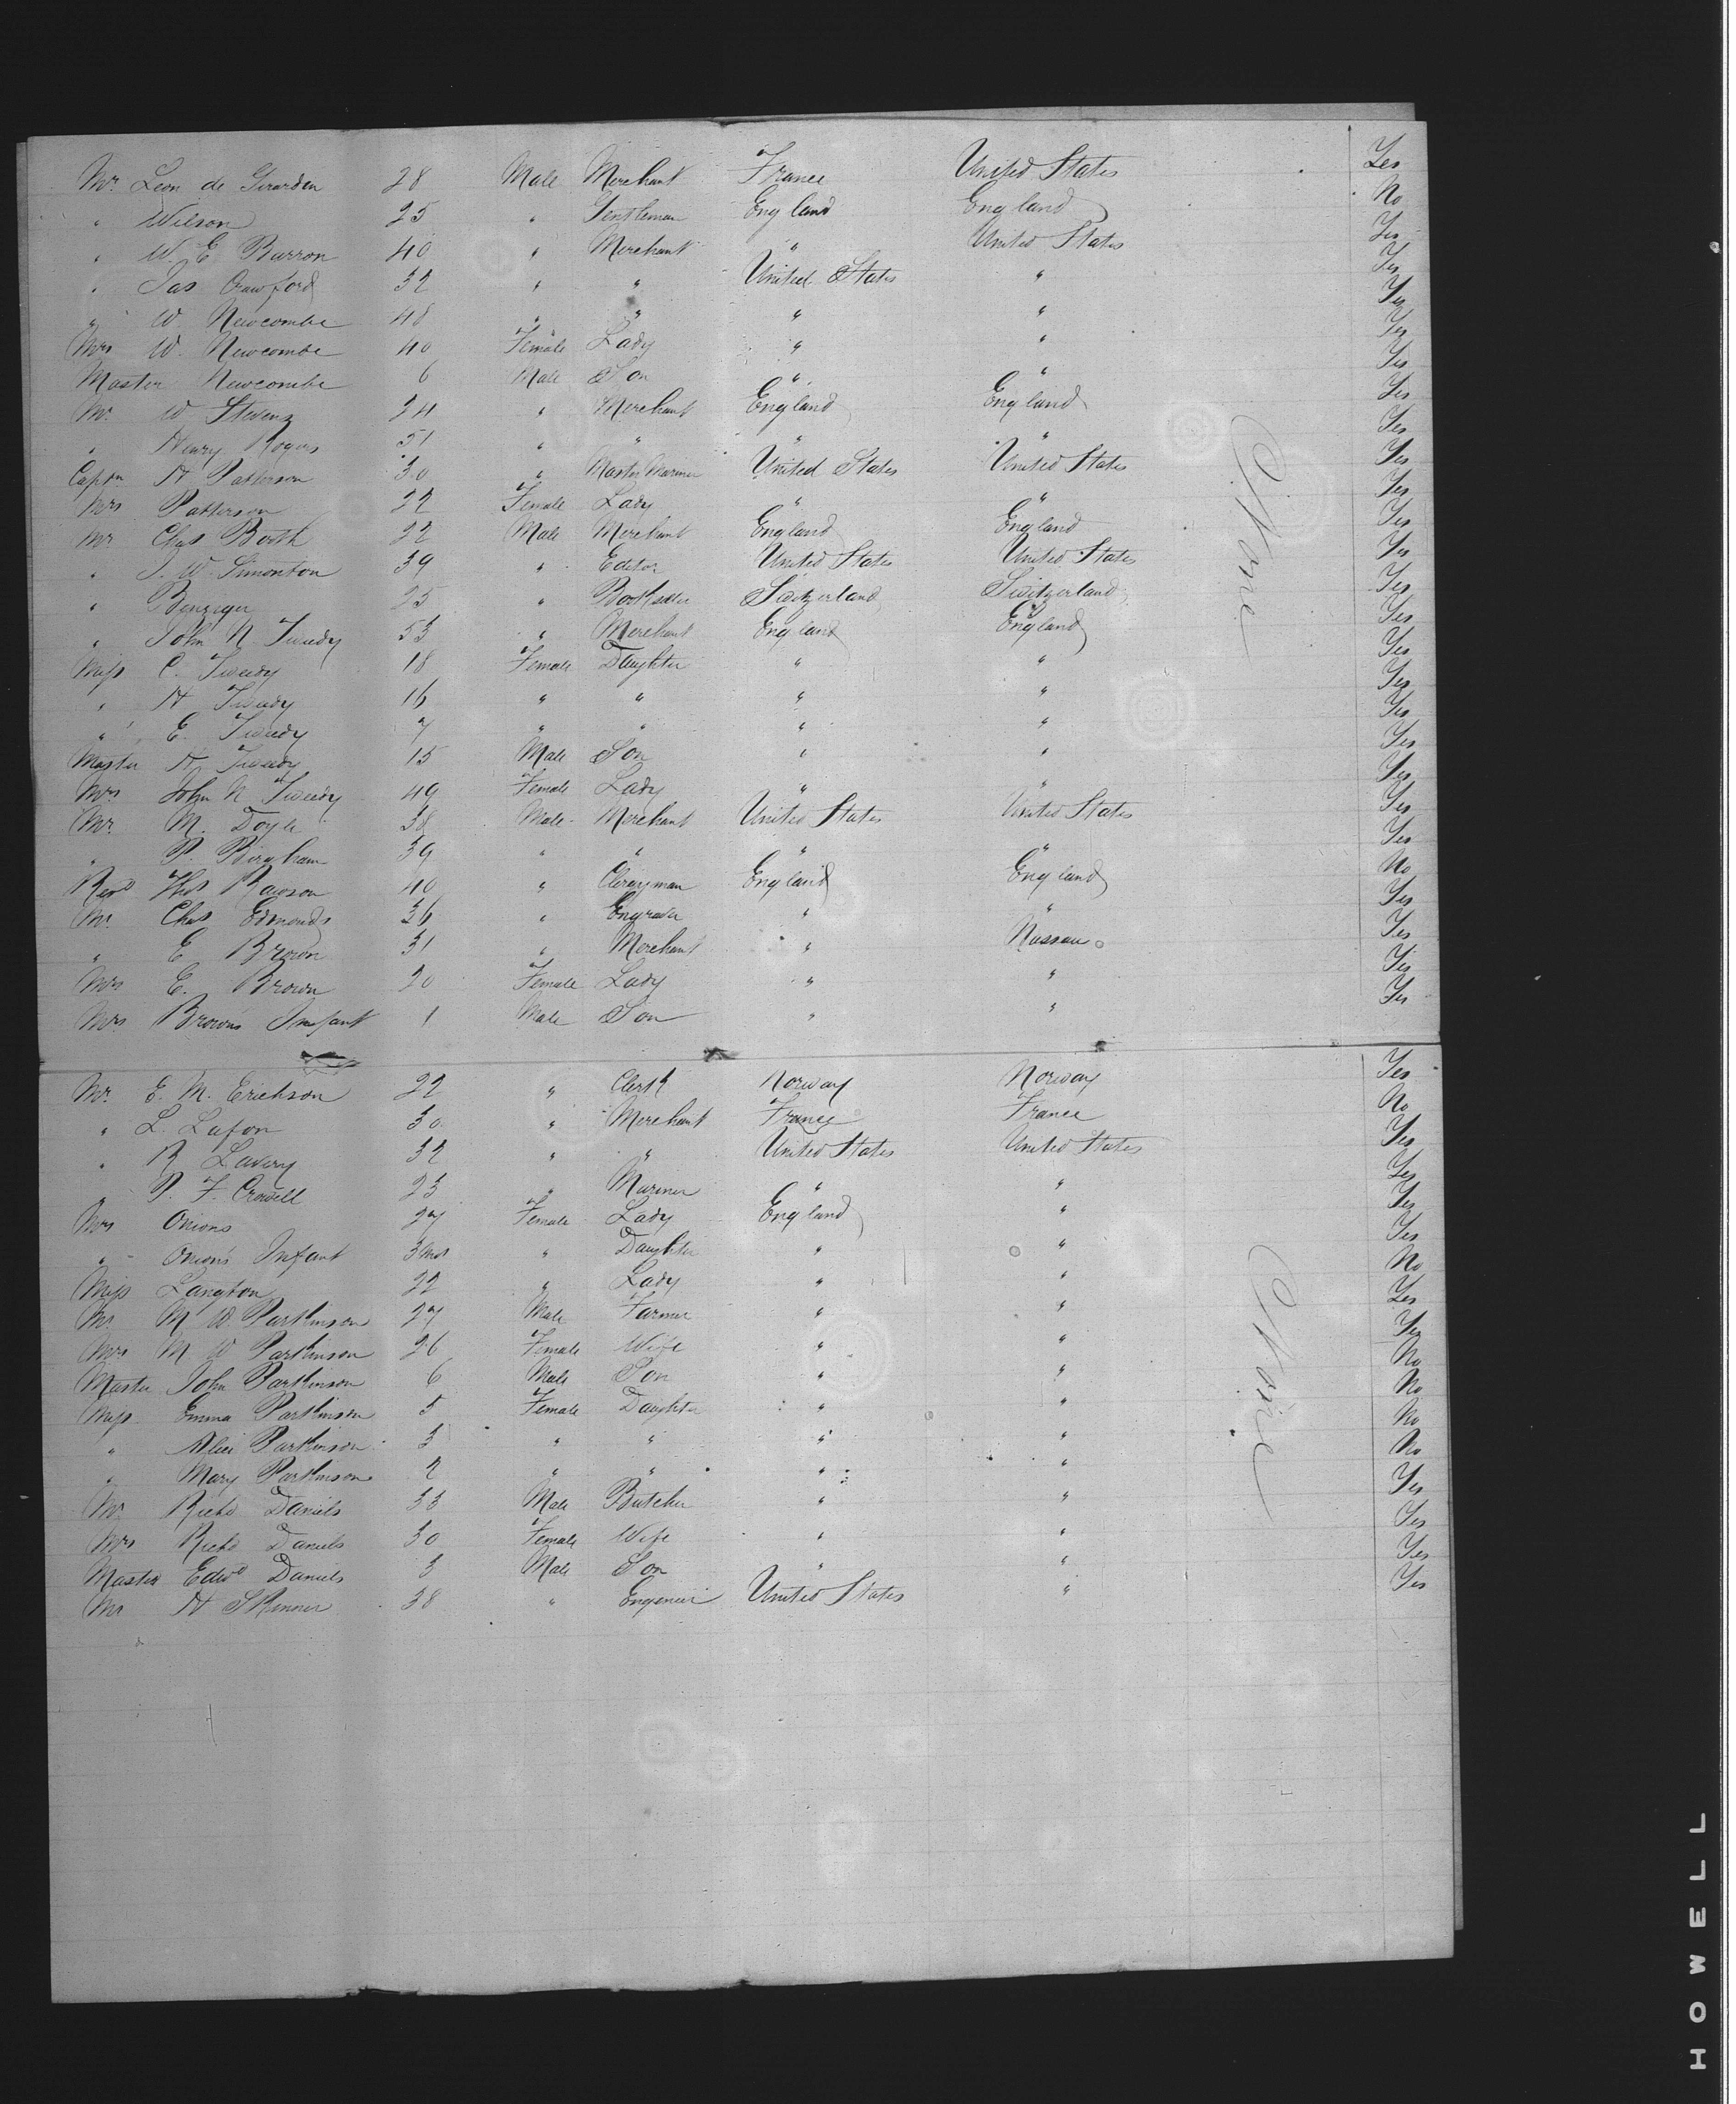 Mr. Leon de Girarden 28 Male Merchant France United States Yes
" Wilson 25 " Gentleman England England No
" W. E Barron 40 " Merchant " United States Yes
" Jas Crawford 32 " " United States " Yes
" W. Newcombe 48 " " " " Yes
Mrs W. Newcombe 40 Female Lady " " Yes
Master Newcombe 6 Male Son " " Yes
Mr. W Stevens 24 " Merchant England England Yes
" Henry Rogers 51 " " " " Yes
Captn H Patterson 30 " Master Mariner United States United States Yes
Mrs Patterson 22 Female Lady " " Yes
Mr Chas Booth 22 Male Merchant England England Yes
" J. W. Simonton 39 " Editor United States United States Yes
" Benziger 25 " Bookseller Switzerland Switzerland Yes
" John N. Tweedy 53 " Merchant England England Yes
Miss C. Tweedy 18 Female Daughter " " Yes
" H Tweedy 16 " " " " Yes
" E. Tweedy 7 " " " " Yes
Master H Tweedy 15 Male Son " " Yes
Mrs John N Tweedy 49 Female Lady " " Yes
Mr. M. Doyle 38 Male Merchant United States United States Yes
" P. Bingham 39 " " " " Yes
Revd Thos Rawson 40 " Clergyman England England No
Mr. Chas Edmonds 36 " Engraver " " Yes
" E Brown 31 " Merchant " Nassau Yes
Mrs E. Brown 20 Female Lady " " Yes
Mrs Brown's Infant 1 Male Son " " Yes
None
Mr. E. M. Erickson 22 " Clerk Norway Norway Yes
" L. Lafon 30 " Merchant France France No
" R Lavery 32 " " United States United States Yes
" P. F. Crowell 23 " Mariner " " Yes
Mrs Onions 27 Female Lady England " Yes
" Onion's Infant 3 mos " Daughter " " Yes
Miss Langton 22 " Lady " " No
Mr. M W. Parkinson 27 Male Farmer " " Yes
Mrs M W Parkinson 26 Female Wife " " Yes
Master John Parkinson 6 Male Son " " No
Miss Emma Parkinson 5 Female Daughter " " No
" Alice Parkinson 3 " " " " No
" Mary Parkinson 2 " " " " No
Mr. Richd Daniels 33 Male Butcher " " Yes
Mrs Richd Daniels 30 Female Wife " " Yes
Master Edwd Daniels 3 Male Son " " Yes
Mr H Skinner 38 " Engeneer United States " Yes
None
HOWELL